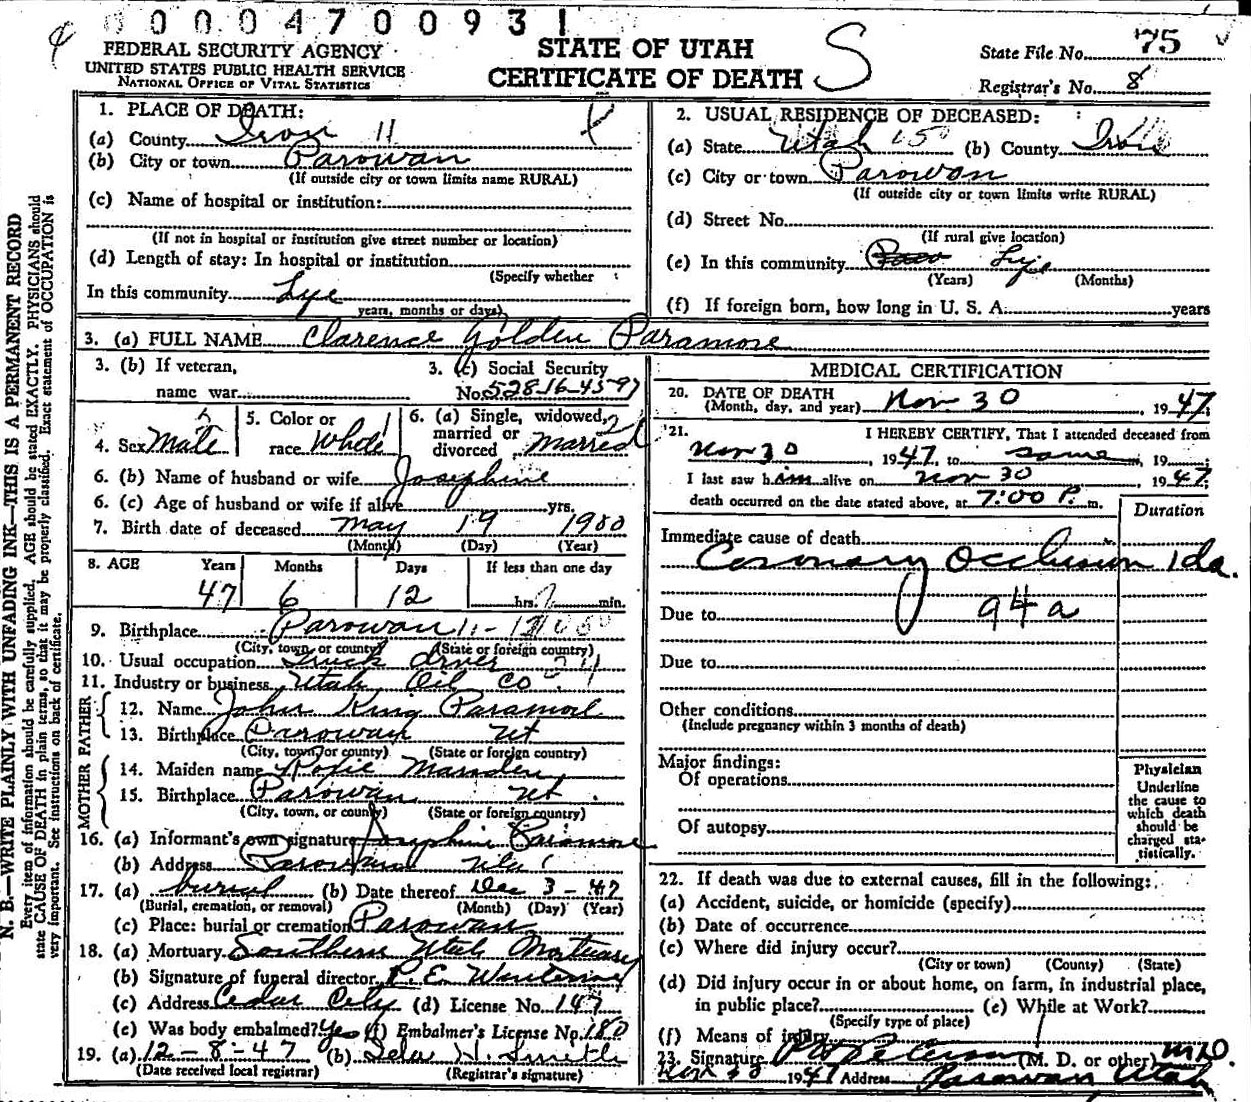 00004700931
FEDERAL SECURITY AGENCY
UNITED STATES PUBLIC HEALTH SERVICE
NATIONAL OFFICE OF VITAL STATISTICS
STATE OF UTAH
CERTIFICATE OF DEATH
S
State File No. 75
Registrar's No. 8
N. B.—WRITE PLAINLY WITH UNFADING INK—THIS IS A PERMANENT RECORD
Every item of information should be carefully supplied. AGE should be stated EXACTLY. PHYSICIANS should
state CAUSE OF DEATH in plain terms, so that it may be properly classified. Exact statement of OCCUPATION is
very important. See instructions on back of certificate.
1. PLACE OF DEATH:
(a) County Iron 11
(b) City or town Parowan
(If outside city or town limits name RURAL)
(c) Name of hospital or institution:
(If not in hospital or institution give street number or location)
(d) Length of stay: In hospital or institution
(Specify whether
In this community Life
years, months or days)
2. USUAL RESIDENCE OF DECEASED:
(a) State Utah (b) County Iron
(c) City or town Parowan
(If outside city or town limits write RURAL)
(d) Street No.
(If rural give location)
(e) In this community Life
(Years) (Months)
(f) If foreign born, how long in U. S. A. years
3. (a) FULL NAME Clarence Golden Paramore
3. (b) If veteran,
name war
3. (c) Social Security
No. 528-16-4597
4. Sex Male
5. Color or
race White
6. (a) Single, widowed,
married or
divorced Married
6. (b) Name of husband or wife Josephine
6. (c) Age of husband or wife if alive yrs.
7. Birth date of deceased May 19 1900
(Month) (Day) (Year)
8. AGE Years Months Days If less than one day
47 6 12 hrs. min.
9. Birthplace Parowan
(City, town, or county) (State or foreign country)
10. Usual occupation Truck driver
11. Industry or business Utah Oil Co
FATHER
12. Name John King Paramore
13. Birthplace Parowan Ut
(City, town, or county) (State or foreign country)
MOTHER
14. Maiden name Marsden
15. Birthplace Parowan Ut
(City, town, or county) (State or foreign country)
16. (a) Informant's own signature Josephine Paramore
(b) Address Parowan
17. (a) burial (b) Date thereof Dec 3-47
(Burial, cremation, or removal) (Month) (Day) (Year)
(c) Place: burial or cremation Parowan
18. (a) Mortuary Southern Utah Mortuary
(b) Signature of funeral director
(c) Address Cedar City (d) License No. 147
(e) Was body embalmed? Yes (f) Embalmer's License No. 180
19. (a) 12-8-47 (b) H. Smith
(Date received local registrar) (Registrar's signature)
MEDICAL CERTIFICATION
20. DATE OF DEATH
(Month, day, and year) Nov 30, 1947
21. I HEREBY CERTIFY, That I attended deceased from
Nov 30, 1947, to same, 19
I last saw him alive on Nov 30, 1947;
death occurred on the date stated above, at 7:00 P. m.
Duration
Immediate cause of death
Coronary Occlusion 1 da.
Due to 94a
Due to
Other conditions
(Include pregnancy within 3 months of death)
Major findings:
Of operations
Of autopsy
Physician
Underline
the cause to
which death
should be
charged sta-
tistically.
22. If death was due to external causes, fill in the following:
(a) Accident, suicide, or homicide (specify)
(b) Date of occurrence
(c) Where did injury occur?
(City or town) (County) (State)
(d) Did injury occur in or about home, on farm, in industrial place,
in public place? (e) While at Work?
(Specify type of place)
(f) Means of injury
23. Signature Peterson (M. D. or other) M.D.
1947 Address Parowan, Utah